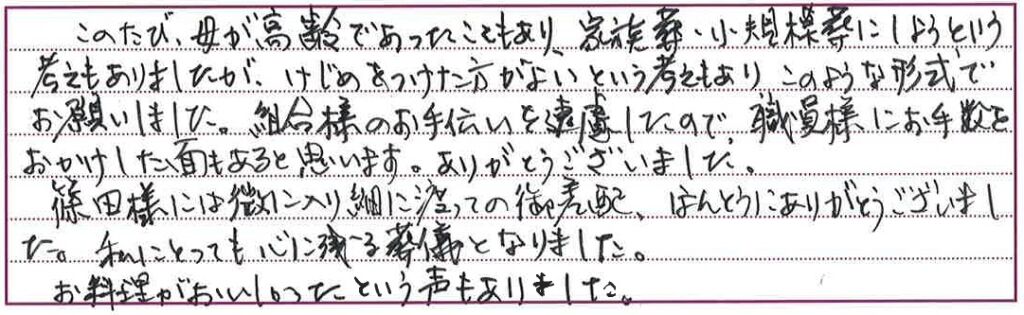 このたび、母が高齢であったこともあり、家族葬・小規模葬にしようという
考えもありましたが、けじめをつけた方がよいという考えもあり、このような形式で
お願いしました。組合様のお手伝いを遠慮したので、職員様にお手数を
おかけした面もあると思います。ありがとうございました。
篠田様には微に入り細に渡っての御差配、ほんとうにありがとうございまし
た。私にとっても心に残る葬儀となりました。
お料理がおいしかったという声もありました。